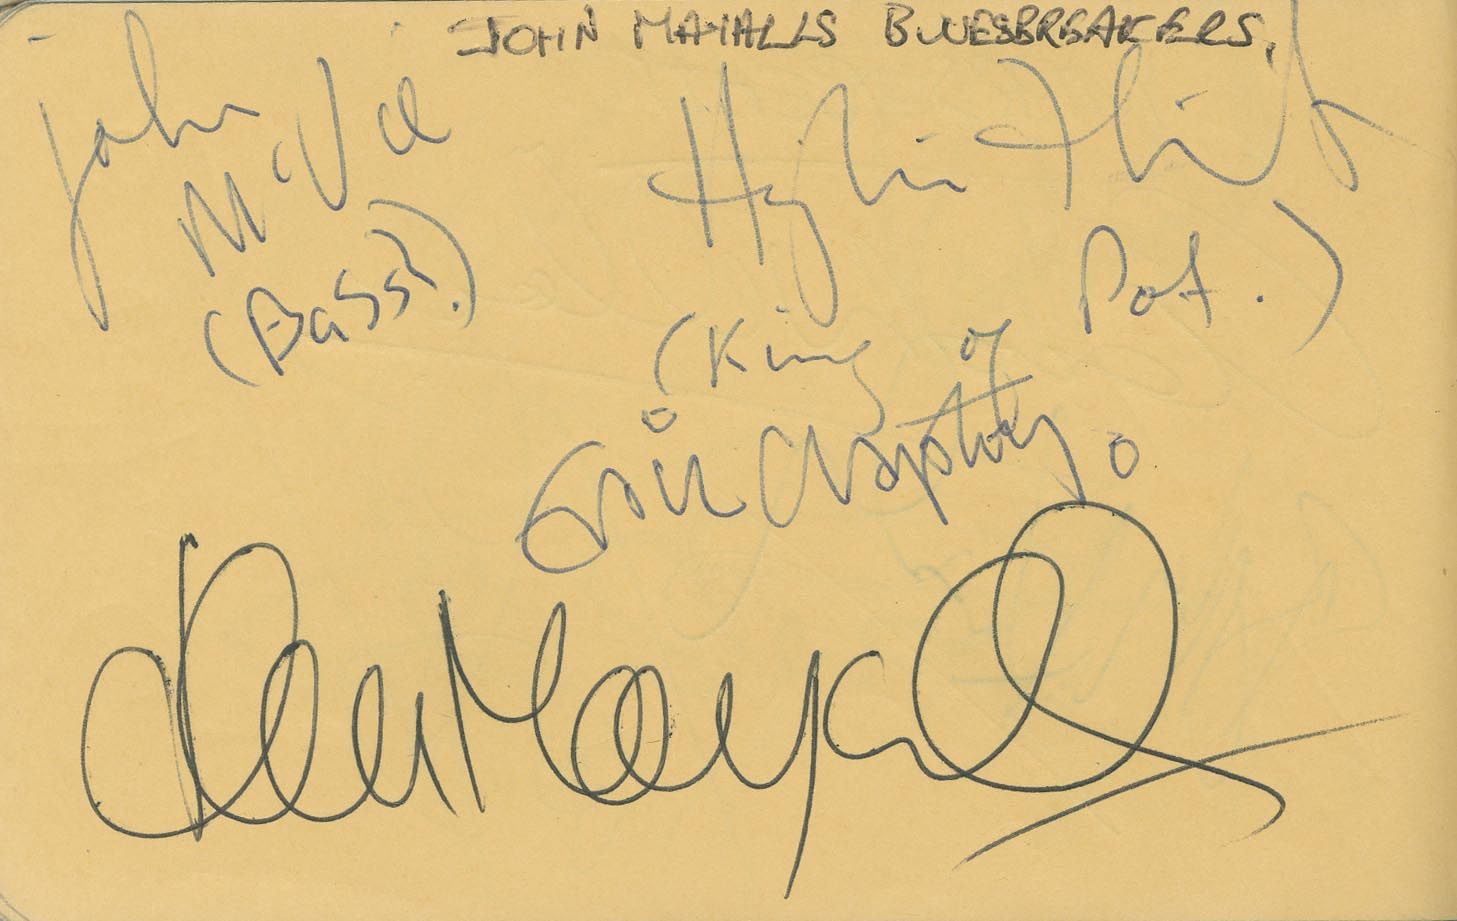 JOHN MAYALLS BLUESBREAKERS,
John
McVie
(Bass?.)
Hughie Flint
(King of Pot.)
Eric Clapton
John Mayall